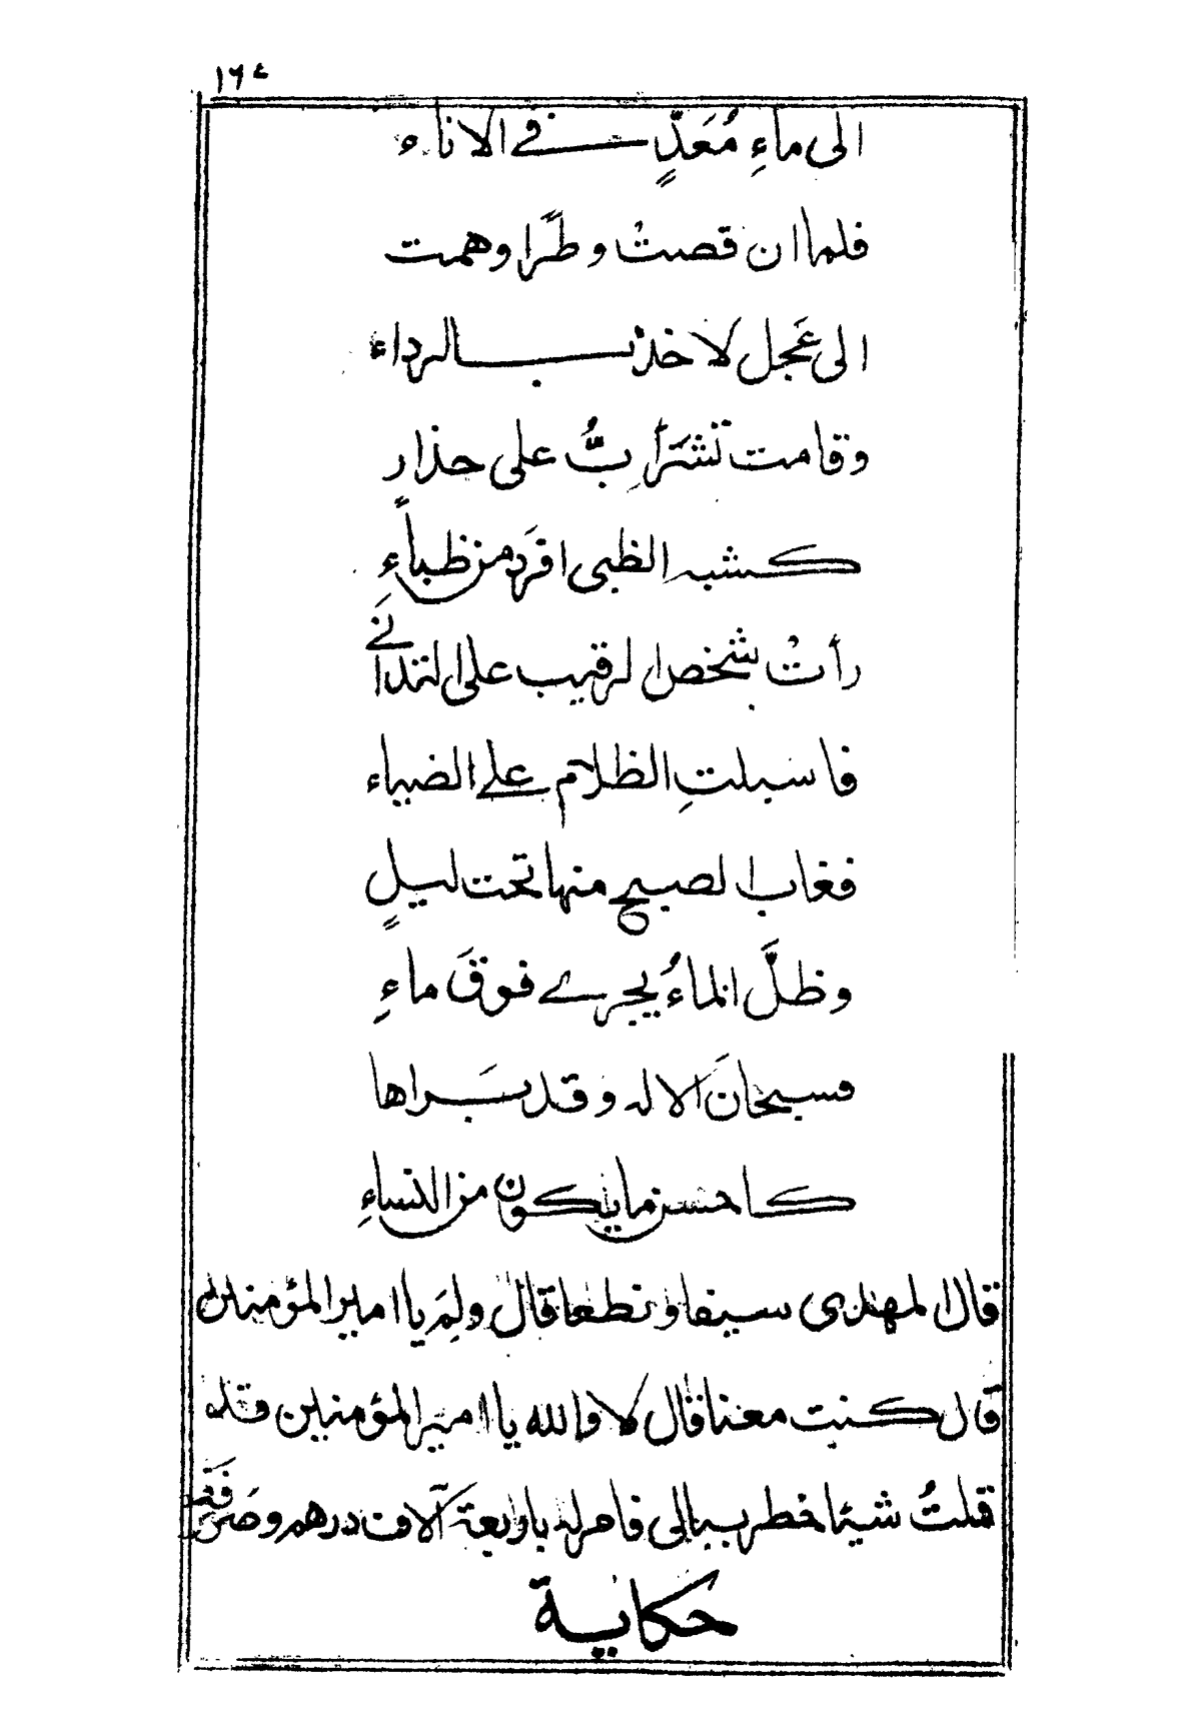 ١٦٤
الى ماءِ مُعَدٍّ في الاناء
فلما ان قصتْ وطَرًا وهمت
الى عَجل لاخذ بالرداء
وقامت تشرَأبُّ على حذار
كشبه الظبى افرَد من ظباًءِ
رأتْ شخص الرقيب على التدانَي
فاسبلتِ الظلام على الضياء
فغاب الصبح منها تحت ليلٍ
وظلَّ الماءُ يجرى فوقَ ماءِ
فسبحانَ الاله وقد بَراها
كاحسن ما يكون من النساءِ
قال المهدى سيفا ونطعا قال ولِمَ يا امير المؤمنين
قال كنت معنا قال لا والله يا امير المؤمنين قد
قلتُ شيئا خطر ببالى فامر له باربعة آلاف درهم وصَرَفَه
حكاية